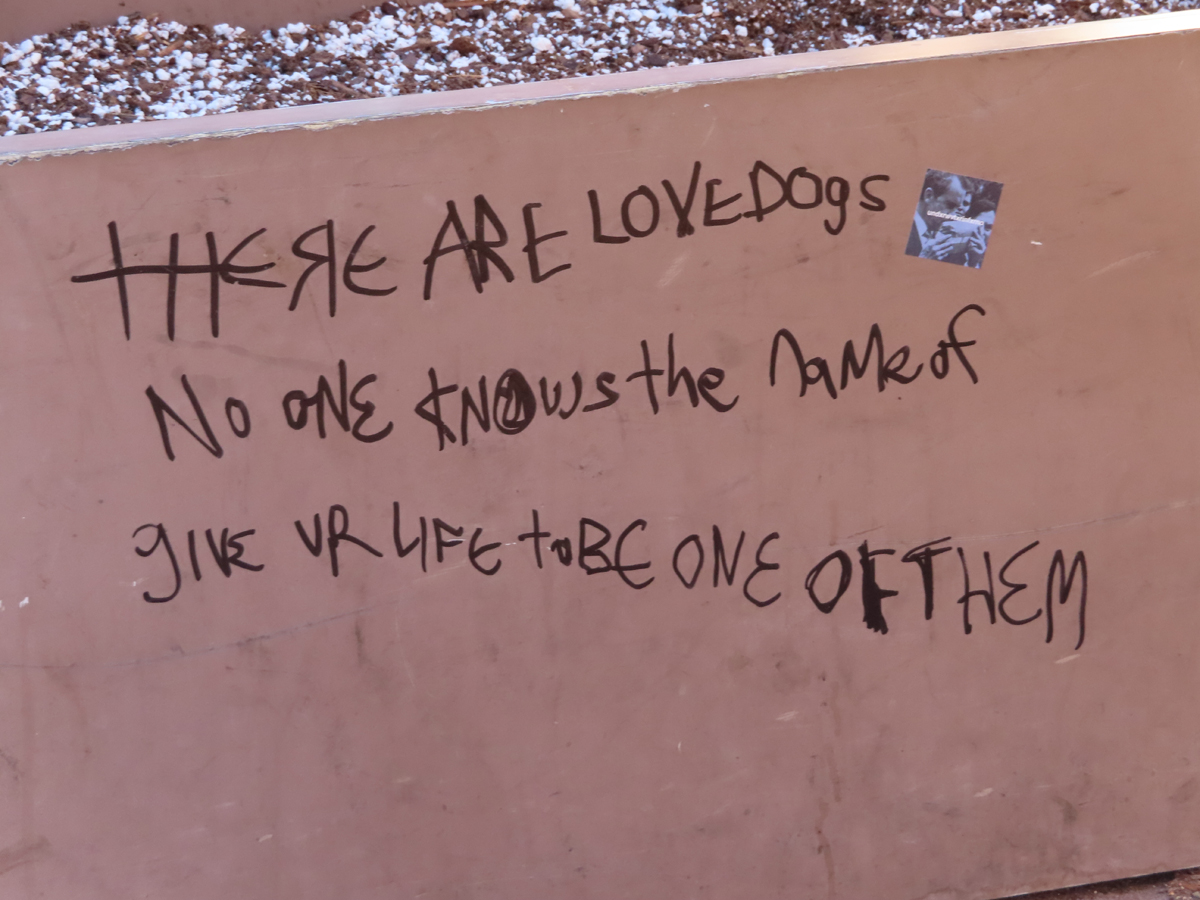 THERE ARE LOVE DOgs
No ONE KNOWs the NaMe of
gIVE UR LIFE to BE ONE OF THEM